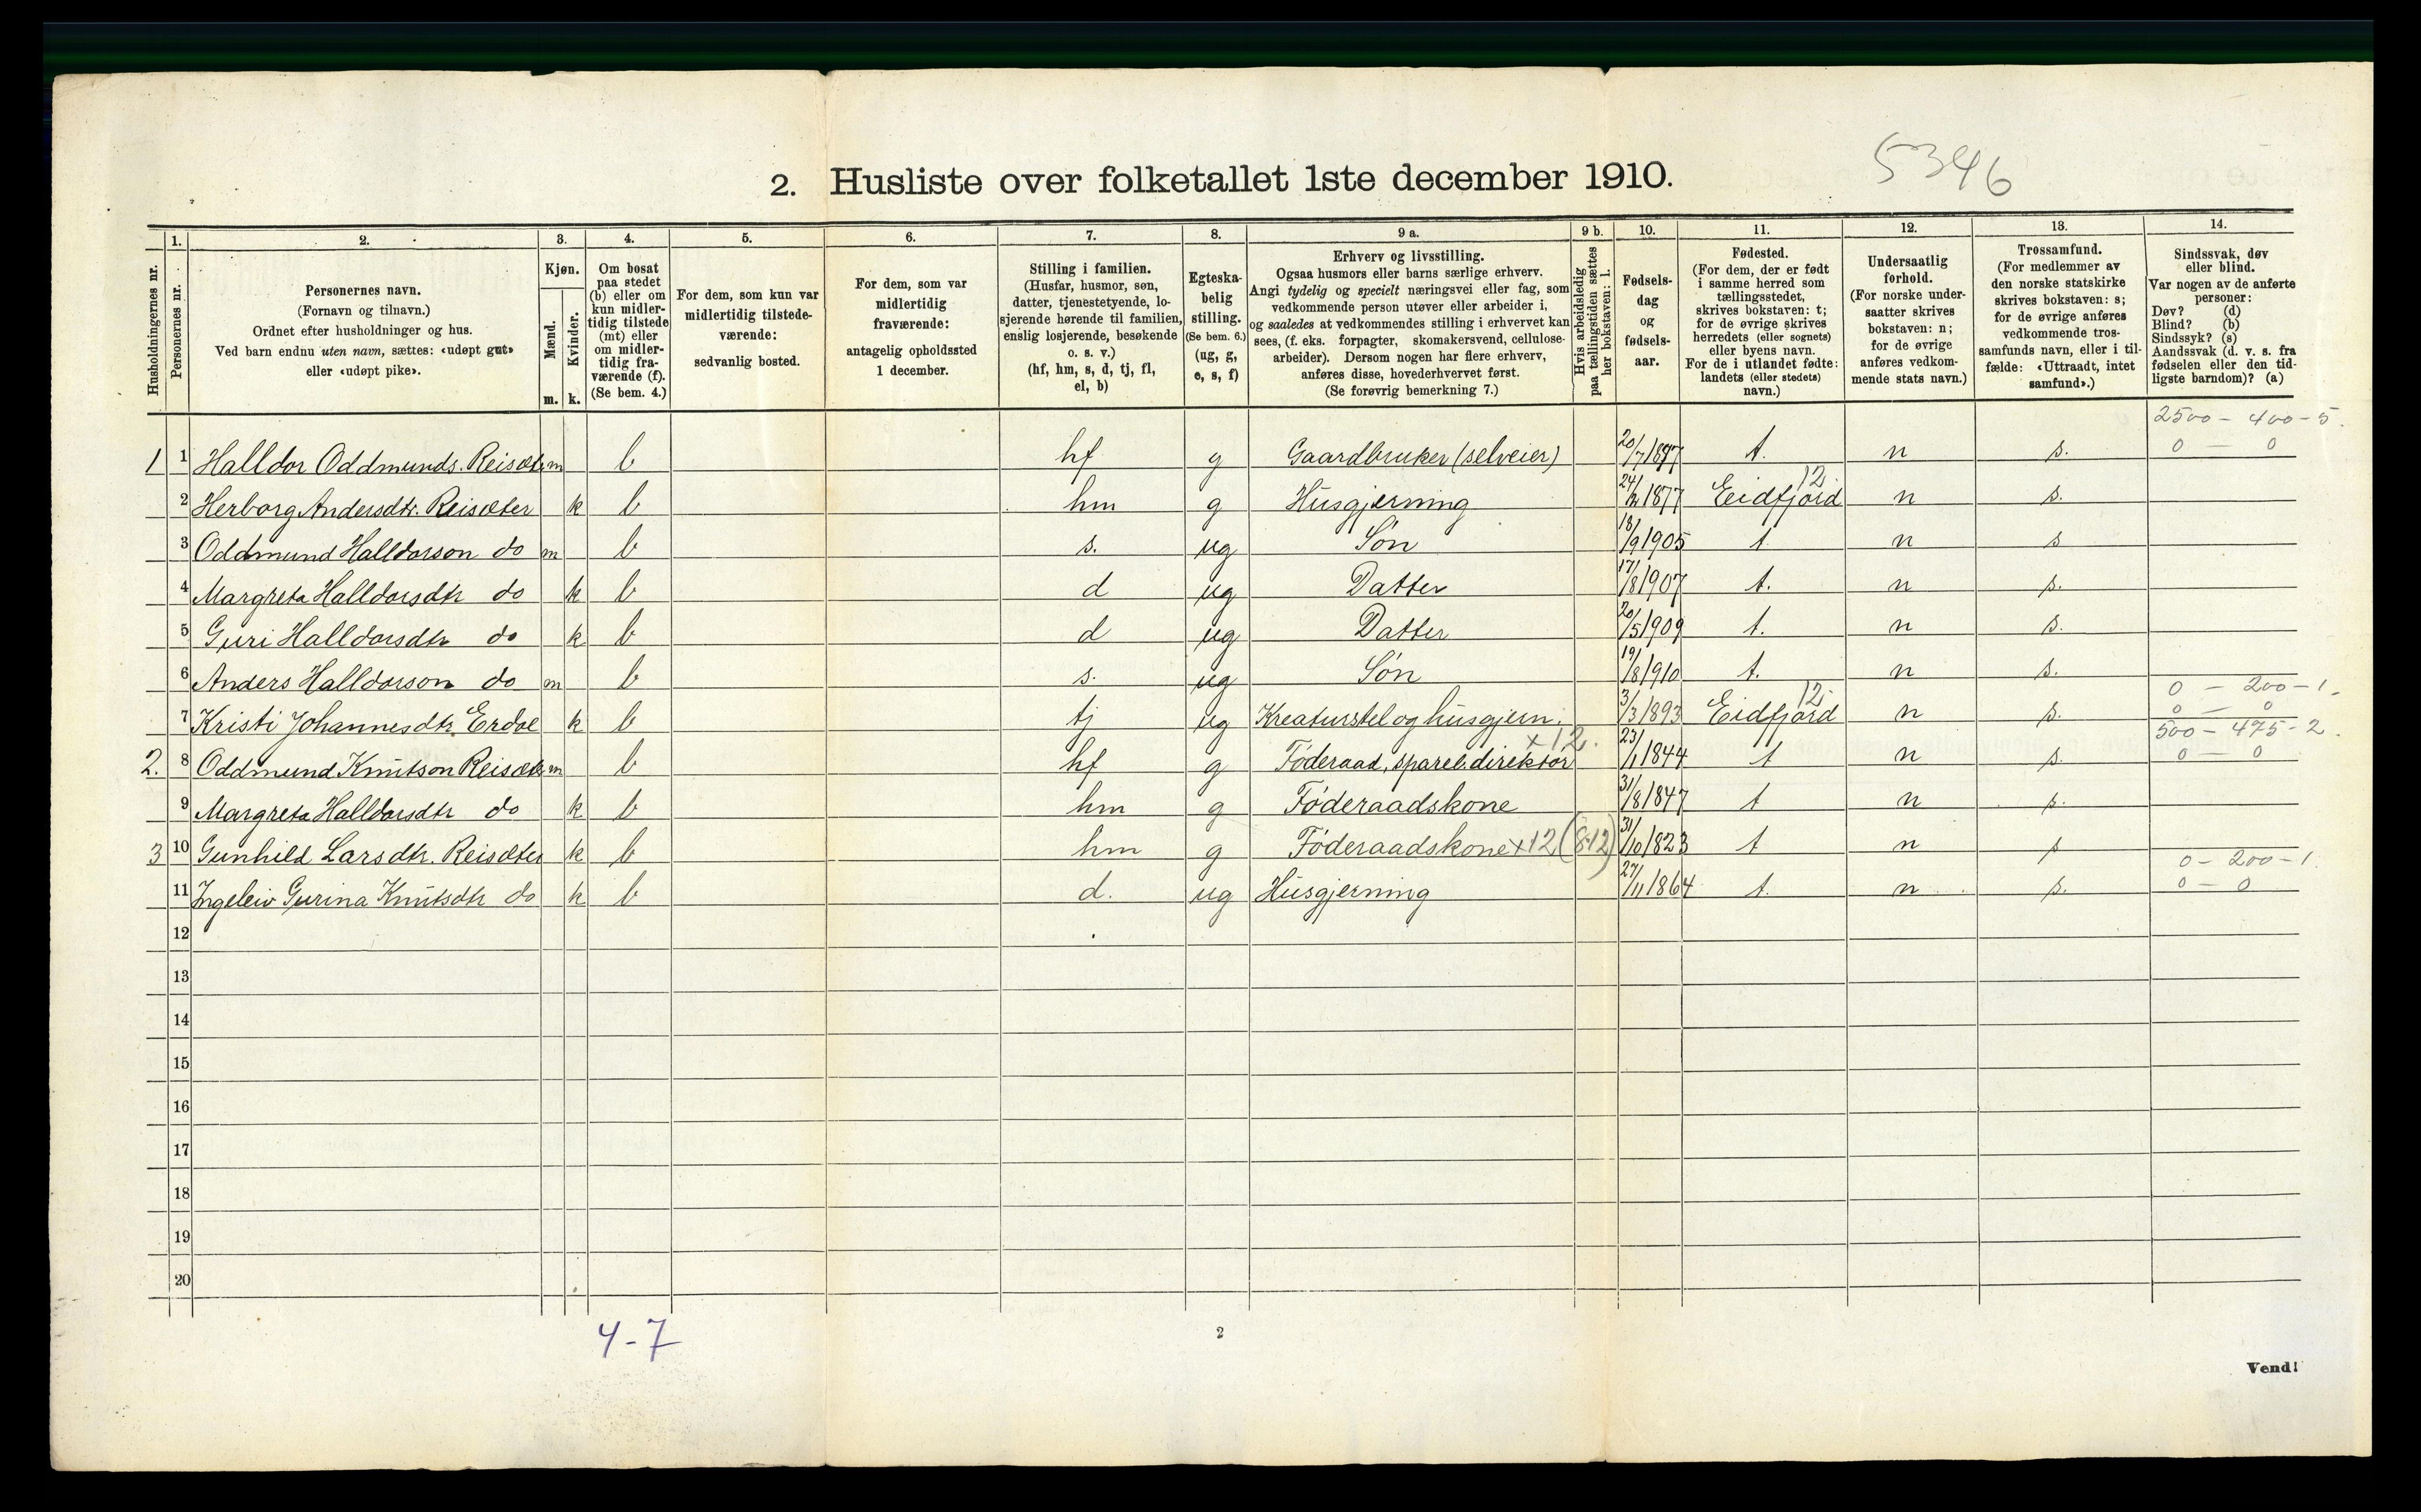 5346
2. Husliste over folketallet 1ste december 1910.
Husholdningernes nr.
1. Personernes nr.
2. Personernes navn.
(Fornavn og tilnavn.)
Ordnet efter husholdninger og hus.
Ved barn endnu uten navn, sættes: «udøpt gut»
eller «udøpt pike».
3. Kjøn.
Mænd. m.
Kvinder. k.
4. Om bosat
paa stedet
(b) eller om
kun midler-
tidig tilstede
(mt) eller
om midler-
tidig fra-
værende (f).
(Se bem. 4.)
5. For dem, som kun var
midlertidig tilstede-
værende:
sedvanlig bosted.
6. For dem, som var
midlertidig
fraværende:
antagelig opholdssted
1 december.
7. Stilling i familien.
(Husfar, husmor, søn,
datter, tjenestetyende, lo-
sjerende hørende til familien,
enslig losjerende, besøkende
o. s. v.)
(hf, hm, s, d, tj, fl,
el, b)
8. Egteska-
belig
stilling.
(Se bem. 6.)
(ug, g,
e, s, f)
9 a. Erhverv og livsstilling.
Ogsaa husmors eller barns særlige erhverv.
Angi tydelig og specielt næringsvei eller fag, som
vedkommende person utøver eller arbeider i,
og saaledes at vedkommendes stilling i erhvervet kan
sees, (f. eks. forpagter, skomakersvend, cellulose-
arbeider). Dersom nogen har flere erhverv,
anføres disse, hovederhvervet først.
(Se forøvrig bemerkning 7.)
9 b. Hvis arbeidsledig
paa tællingstiden sættes
her bokstaven: l.
10. Fødsels-
dag
og
fødsels-
aar.
11. Fødested.
(For dem, der er født
i samme herred som
tællingsstedet,
skrives bokstaven: t;
for de øvrige skrives
herredets (eller sognets)
eller byens navn.
For de i utlandet fødte:
landets (eller stedets)
navn.)
12. Undersaatlig
forhold.
(For norske under-
saatter skrives
bokstaven: n;
for de øvrige
anføres vedkom-
mende stats navn.)
13. Trossamfund.
(For medlemmer av
den norske statskirke
skrives bokstaven: s;
for de øvrige anføres
vedkommende tros-
samfunds navn, eller i til-
fælde: «Uttraadt, intet
samfund».)
14. Sindssvak, døv
eller blind.
Var nogen av de anførte
personer:
Døv? (d)
Blind? (b)
Sindssyk? (s)
Aandssvak (d. v. s. fra
fødselen eller den tid-
ligste barndom)? (a)
2500 - 400 - 5.
1 1 Halldor Oddmunds. Reisæter m b hf g Gaardbruker (selveier) t. n s. 0 - 0
2 Herborg Andersdtr. Reisæter k b hm g Husgjerning 1877 Eidfjord 12 n s.
3 Oddmund Halldorson do m b s. ug Søn 18/9 1905 t n s
4 Margreta Halldorsdtr do k b d ug Datter 17/8 1907 t. n s.
5 Guri Halldorsdtr do k b d ug Datter 20/5 1909 t. n s.
6 Anders Halldorson do m b s. ug Søn 19/8 1910 t. n s.
0 - 200 - 1.
7 Kristi Johannesdtr. Erdal k b tj ug Kreaturstel og husgjern. 3/3 1893 Eidfjord 12 n s. 0 - 0
x12. 500 - 475 - 2.
2. 8 Oddmund Knutson Reisæter m b hf g Føderaad, spareb.direktør 23/1 1844 t n s. 0 - 0
9 Margreta Halldorsdtr do k b hm g Føderaadskone 31/8 1847 t n s.
3 10 Gunhild Larsdtr. Reisæter k b hm g Føderaadskone x12 (8.12) 31/10 1823 t n s
0 - 200 - 1.
11 Ingeleiv Gurina Knutsdtr do k b d. ug Husgjerning 27/11 1864 t. n s. 0 - 0
12
13
14
15
16
17
18
19
20
4-7
2
Vend!